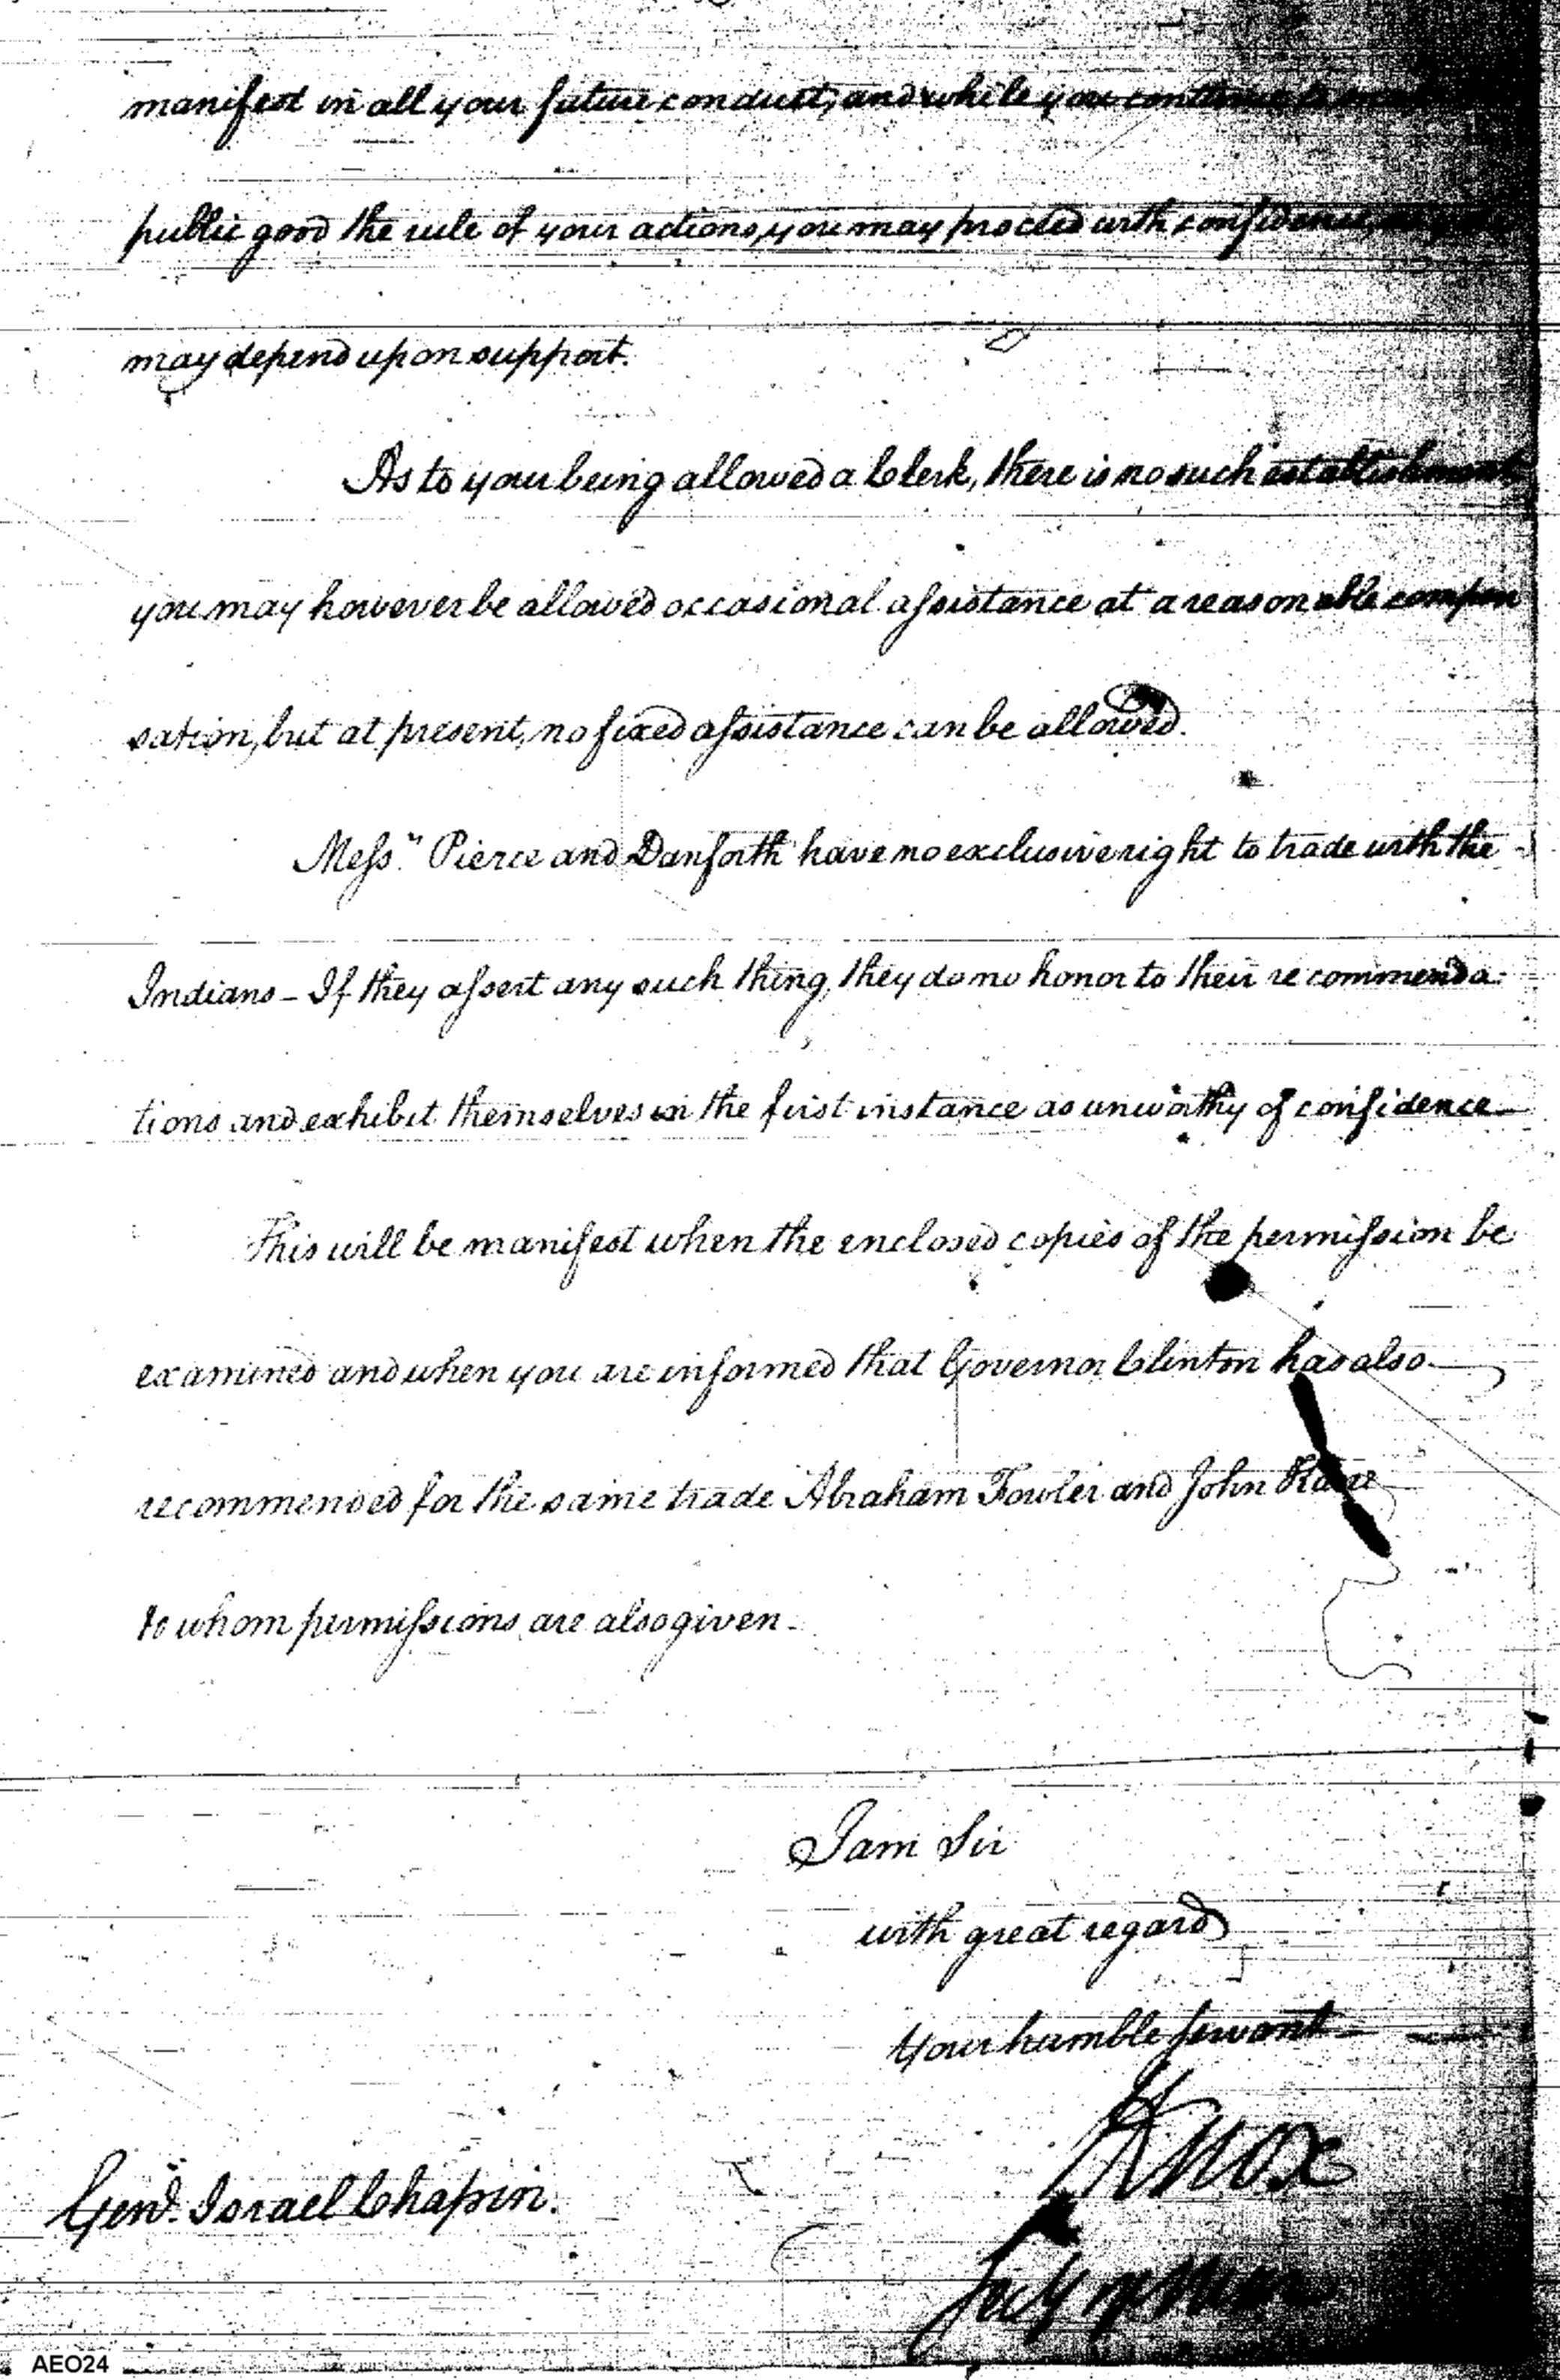 manifest in all your future conduct, and while you continue to
public good the rule of your actions, you may proceed with confidence,
may depend upon support.
As to your being allowed a Clerk, there is no such establishment
you may however be allowed occasional assistance at a reasonable compen
sation, but at present, no fixed assistance can be allowed.
Mess.rs Pierce and Danforth have no exclusive right to trade with the
Indians - If they assert any such thing, they do no honor to their recommenda-
tions and exhibit themselves in the first instance as unworthy of confidence
This will be manifest when the enclosed copies of the permission be
examined and when you are informed that Governor Clinton has also
recommended for the same trade Abraham Fowler and John
to whom permissions are also given -
I am Sir
with great regard
Your humble servant
HKnox
Secy of War
Genl. Israel Chapin.
AEO24